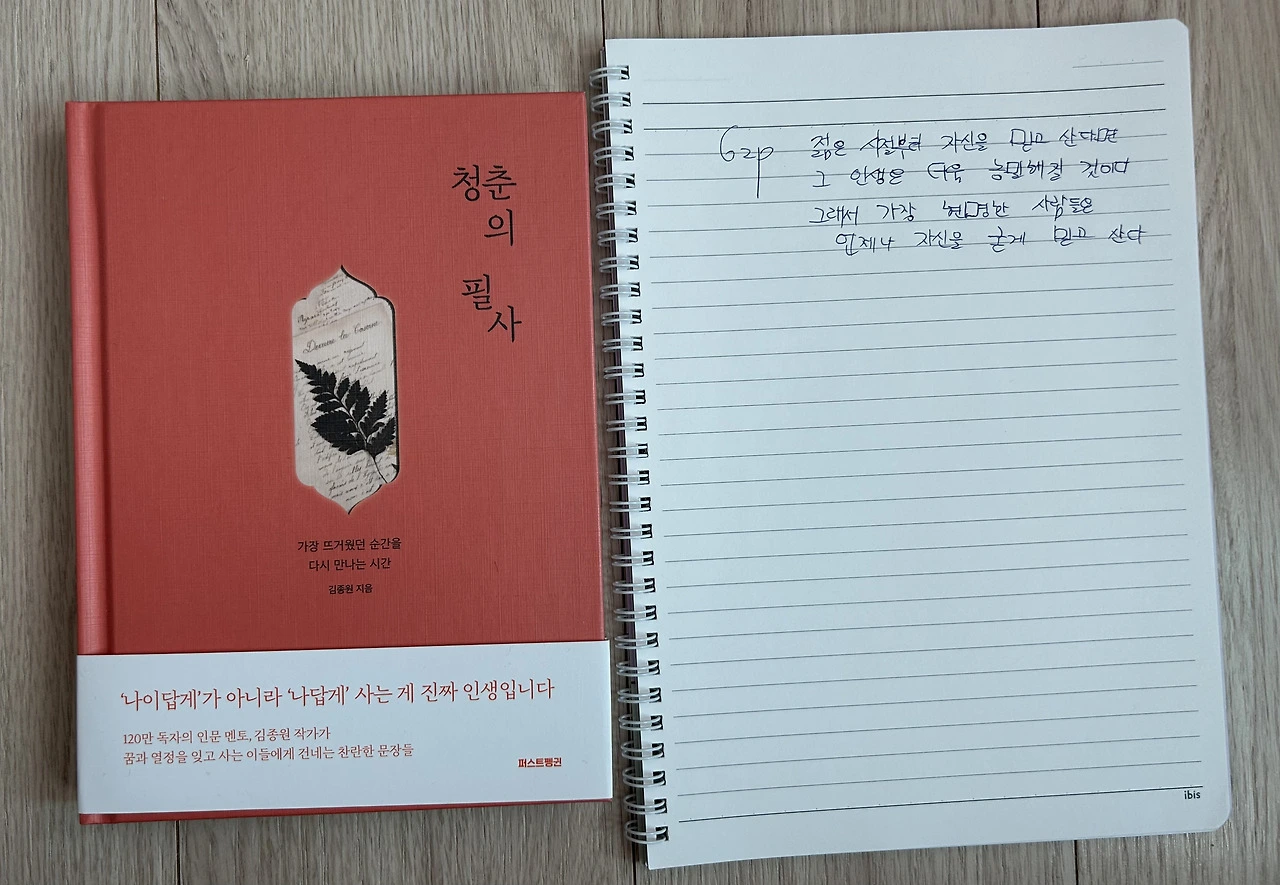 청춘
의
필
사
가장 뜨거웠던 순간을
다시 만나는 시간
김종원 지음
‘나이답게’가 아니라 ‘나답게’ 사는 게 진짜 인생입니다
120만 독자의 인문 멘토, 김종원 작가가
꿈과 열정을 잊고 사는 이들에게 건네는 찬란한 문장들
퍼스트펭귄
62p 젊은 시절부터 자신을 믿고 산다면
그 인생은 더욱 농밀해질 것이다
그래서 가장 현명한 사람들은
언제나 자신을 굳게 믿고 산다
ibis